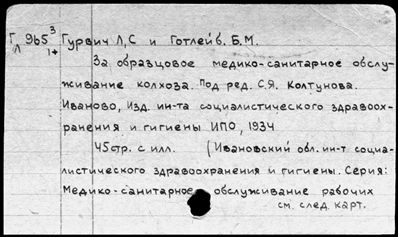 Г 965 3 Гурвич Л,С и Готлейб. Б.М.
Л 1+
За образцовое медико-санитарное обслу-
живание колхоза. Под ред. С.Я. Колтунова.
Иваново, Изд. ин-та социалистического здравоох-
ранения и гигиены ИПО, 1934
45стр. с илл. (Ивановский обл. ин-т социа-
листического здравоохранения и гигиены. Серия:
Медико-санитарное обслуживание рабочих
см. след. карт.